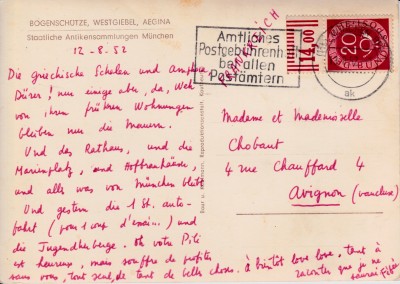 BOGENSCHÜTZE, WESTGIEBEL, AEGINA
Staatliche Antikensammlungen München
12-8-52
Die griechische Schalen und
Dürer! nur einige aber, da,
von ihren frühen Wohnungen
bleiben nur die Mauern.
Und das Rathaus, und die
Marienplatz, und Hofbräuhäuse,
und alles was von München bleibt
Und gestern die 1 St. auto-
fahrt (pour 1 coup d'essai...) und
die Jugendherberge. Oh votre Fifi
est heureux, mais souffre de profiter
sans vous, tout seul, de tant de belles choses. à bientôt love love, tant à
raconter que je ne
saurai Fifi
Amtliches
Postgebührenheft
bei allen
Postämtern
14,00
DEUTSCHE BUNDESPOST
20
Madame et Mademoiselle
Chobaut
4 rue Chauffard 4
Avignon (vaucluse)